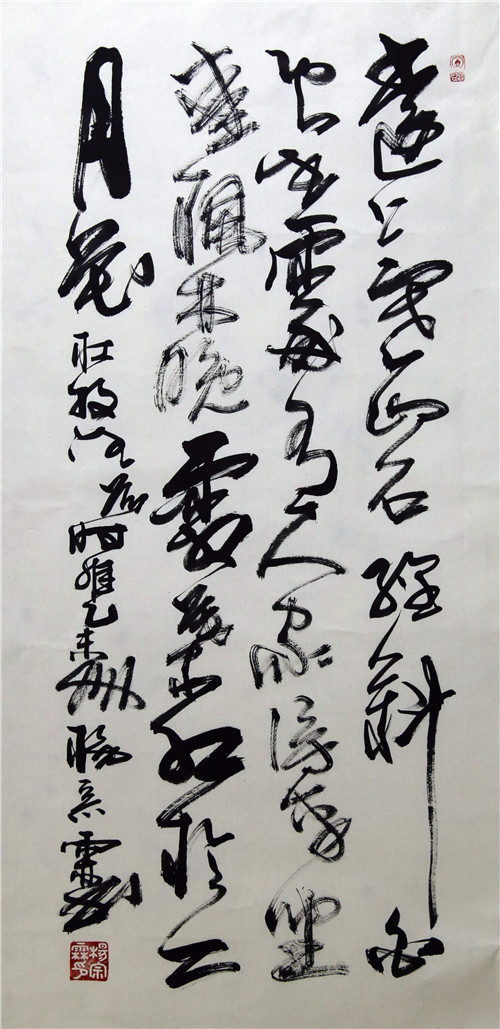 遠上寒山石徑斜白
雲生處有人家停車坐
愛楓林晚霜葉紅於二
月花 杜牧詩 時維乙未 楊宗霖
楊宗霖印